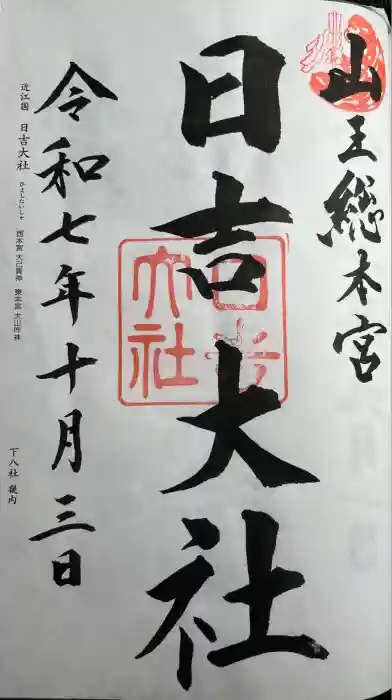 山王総本宮
日吉大社
日吉大社
令和七年十月三日
近江国 日吉大社 ひよしたいしゃ 西本宮 大己貴神 東本宮 大山咋神
下八社 境内